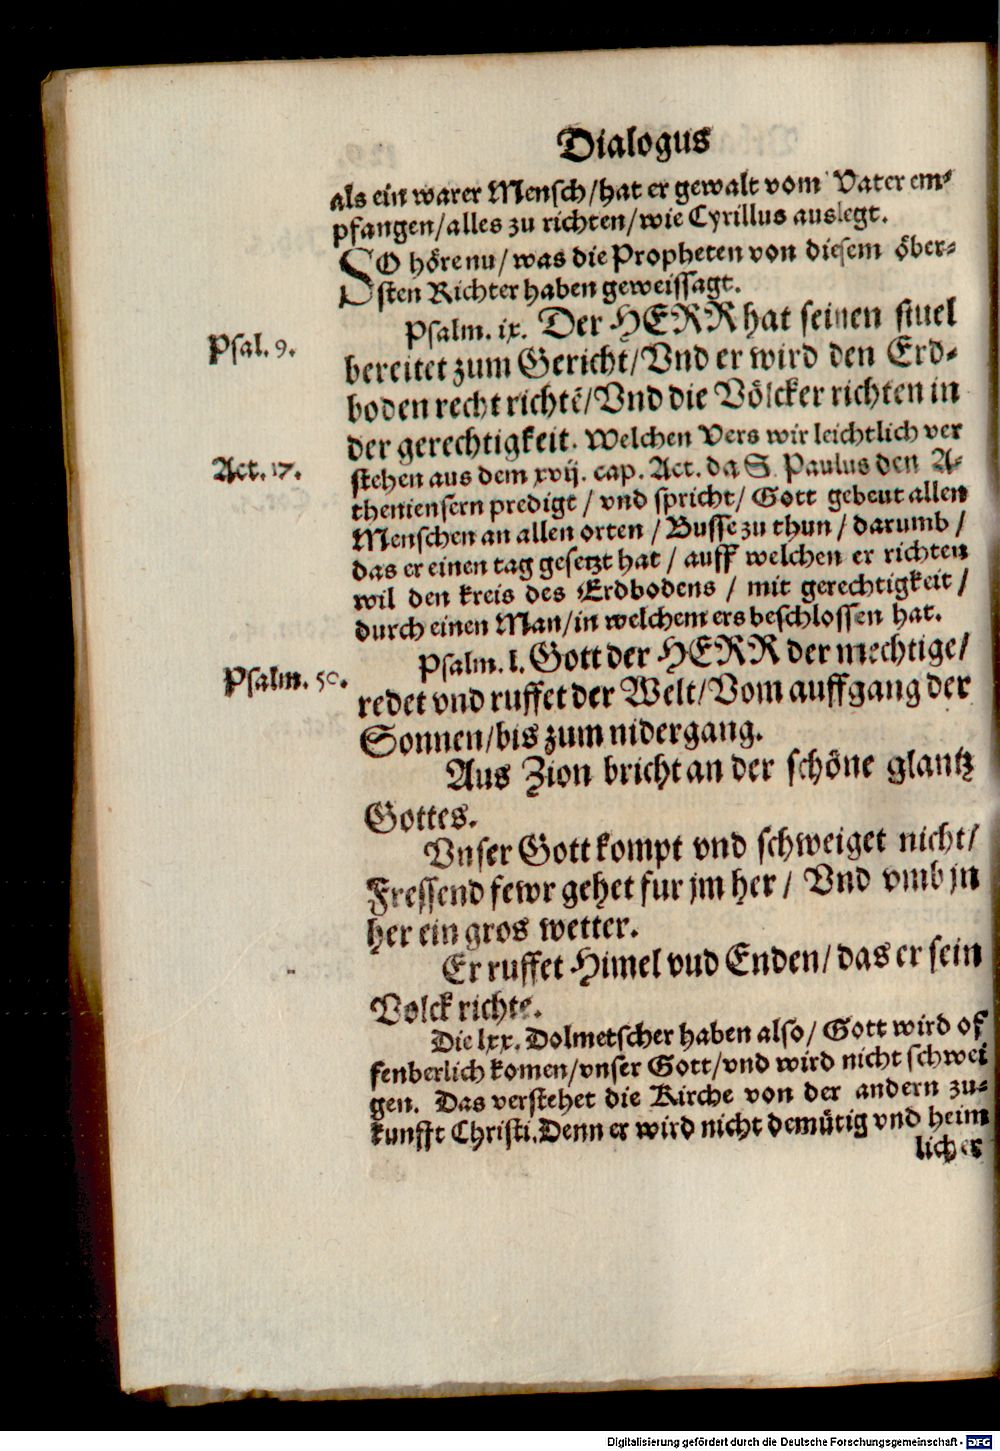 Dialogus
als ein warer Mensch/hat er gewalt vom Vater em-
pfangen/alles zu richten/wie Cyrillus auslegt.
SO höre nu/was die Propheten von diesem öber-
sten Richter haben geweissagt.
Psalm. ix. Der HERR hat seinen stuel
Psal. 9.
bereitet zum Gericht/Vnd er wird den Erd-
boden recht richtē/Vnd die Völcker richten in
der gerechtigkeit. Welchen Vers wir leichtlich ver
Act. 17.
stehen aus dem xvij. cap. Act. da S. Paulus den A-
theniensern predigt / vnd spricht/ Gott gebeut allen
Menschen an allen orten / Busse zu thun / darumb /
das er einen tag gesetzt hat / auff welchen er richten
wil den kreis des Erdbodens / mit gerechtigkeit /
durch einen Man/in welchem ers beschlossen hat.
Psalm. l. Gott der HERR der mechtige/
Psalm. 50.
redet vnd ruffet der Welt/Vom auffgang der
Sonnen/bis zum nidergang.
Aus Zion bricht an der schöne glantz
Gottes.
Vnser Gott kompt vnd schweiget nicht/
Fressend fewr gehet fur jm her / Vnd vmb jn
her ein gros wetter.
Er ruffet Himel vud Enden/das er sein
Volck richte.
Die lxx. Dolmetscher haben also/ Gott wird of
fenberlich komen/vnser Gott/vnd wird nicht schwei
gen. Das verstehet die Kirche von der andern zu-
kunfft Christi. Denn er wird nicht demütig vnd heim
licher
Digitalisierung gefördert durch die Deutsche Forschungsgemeinschaft - DFG